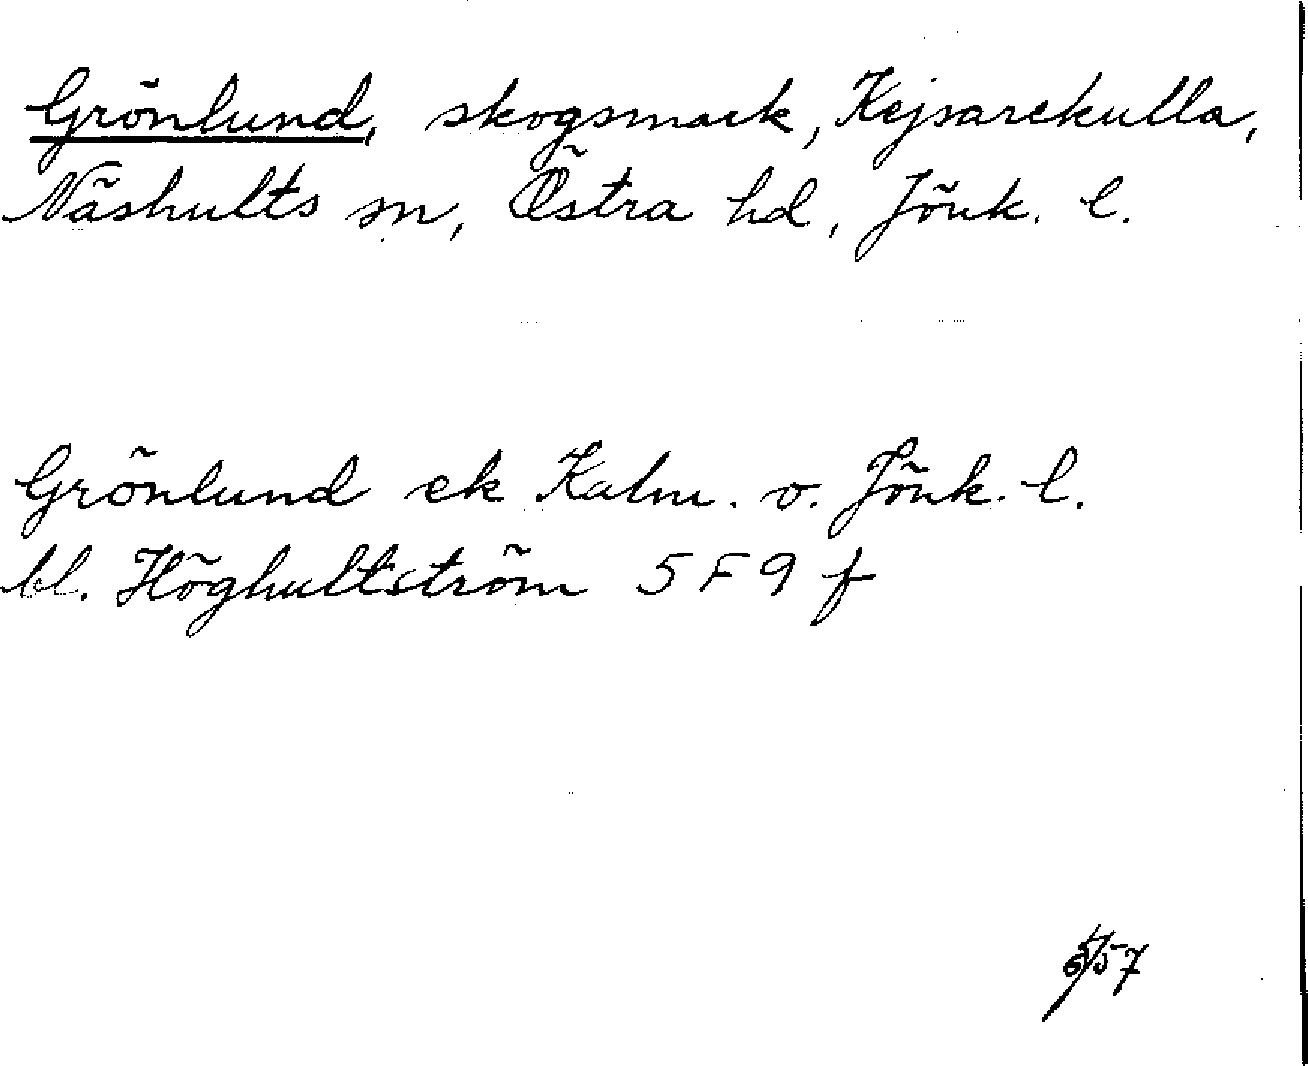 Grönlund, skogsmark, Kejsarekulla,
Näshults sn, Östra hd, Jönk. l.
Grönlund ek Kalm. o. Jönk. l.
bl. Höghultström 5 F 9 f